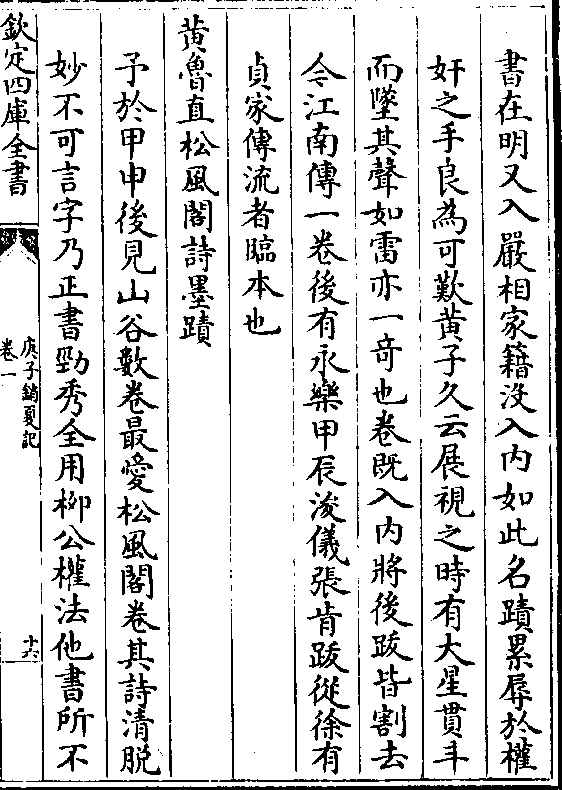 書在明又入嚴相家籍没入内如此名蹟累辱於權
奸之手良為可歎黄子久云展視之時有大星貫斗
而墜其聲如雷亦一竒也卷既入内將後跋皆割去
今江南傳一卷後有永樂甲辰浚儀張肯跋從徐有
貞家傳流者臨本也
黄魯直松風閣詩墨蹟
予於甲申後見山谷數卷最愛松風閣卷其詩清脱
妙不可言字乃正書勁秀全用柳公權法他書所不
欽定四庫全書
庚子銷夏記
卷一
十六